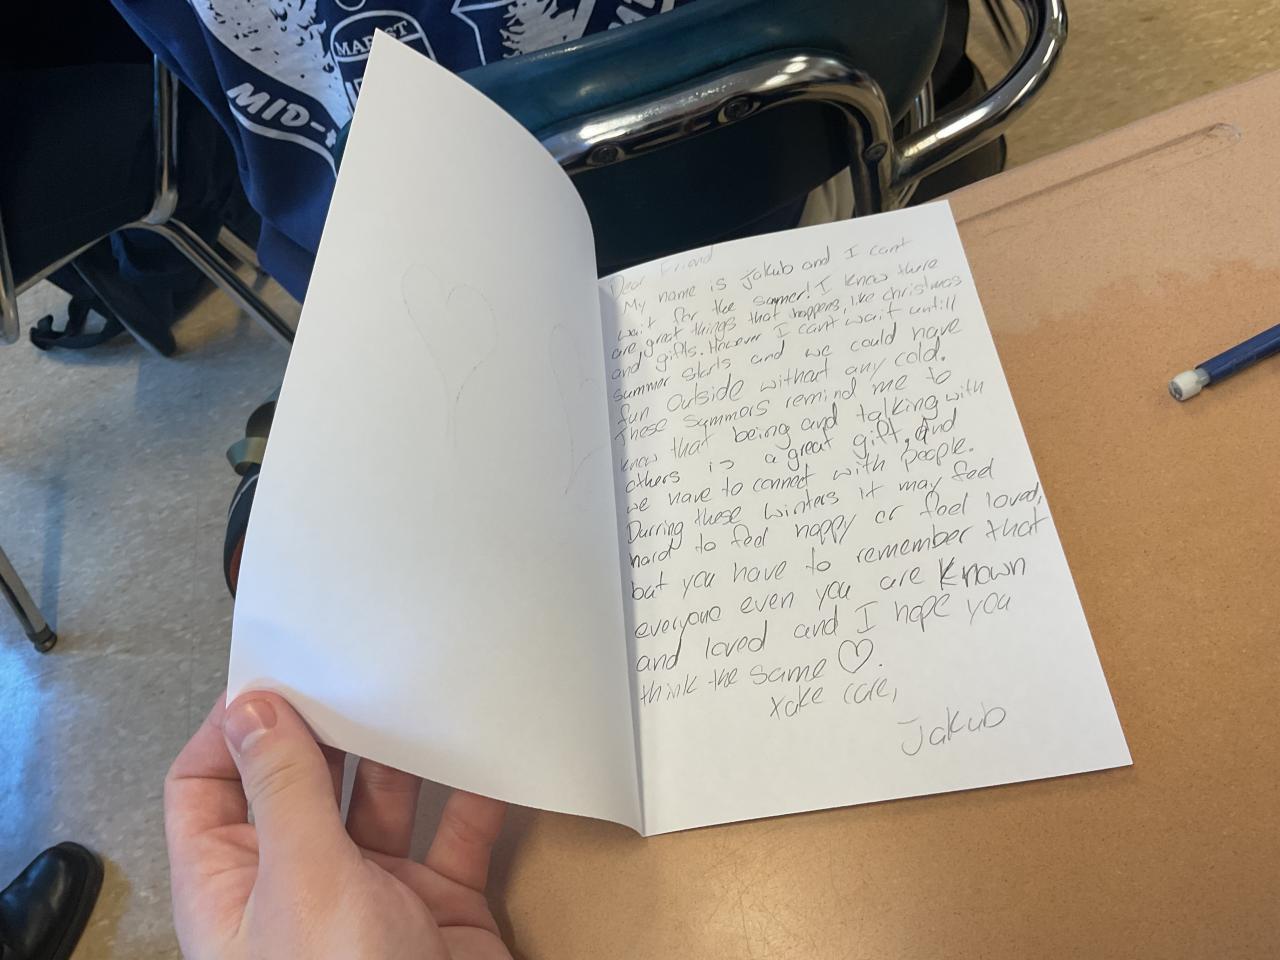 MARIST
MID-
Dear Friend
My name is Jakub and I cant
wait for the summer! I know there
are great things that happens, like christmas
and gifts. However I cant wait untill
summer starts and we could have
fun outside without any cold.
These summors remind me to
know that being and talking with
others is a great gift, and
we have to connect with people.
Durring these winters it may feel
hard to feel happy or feel loved,
but you have to remember that
everyone even you are known
and loved and I hope you
think the same ♡.
Take care,
Jakub